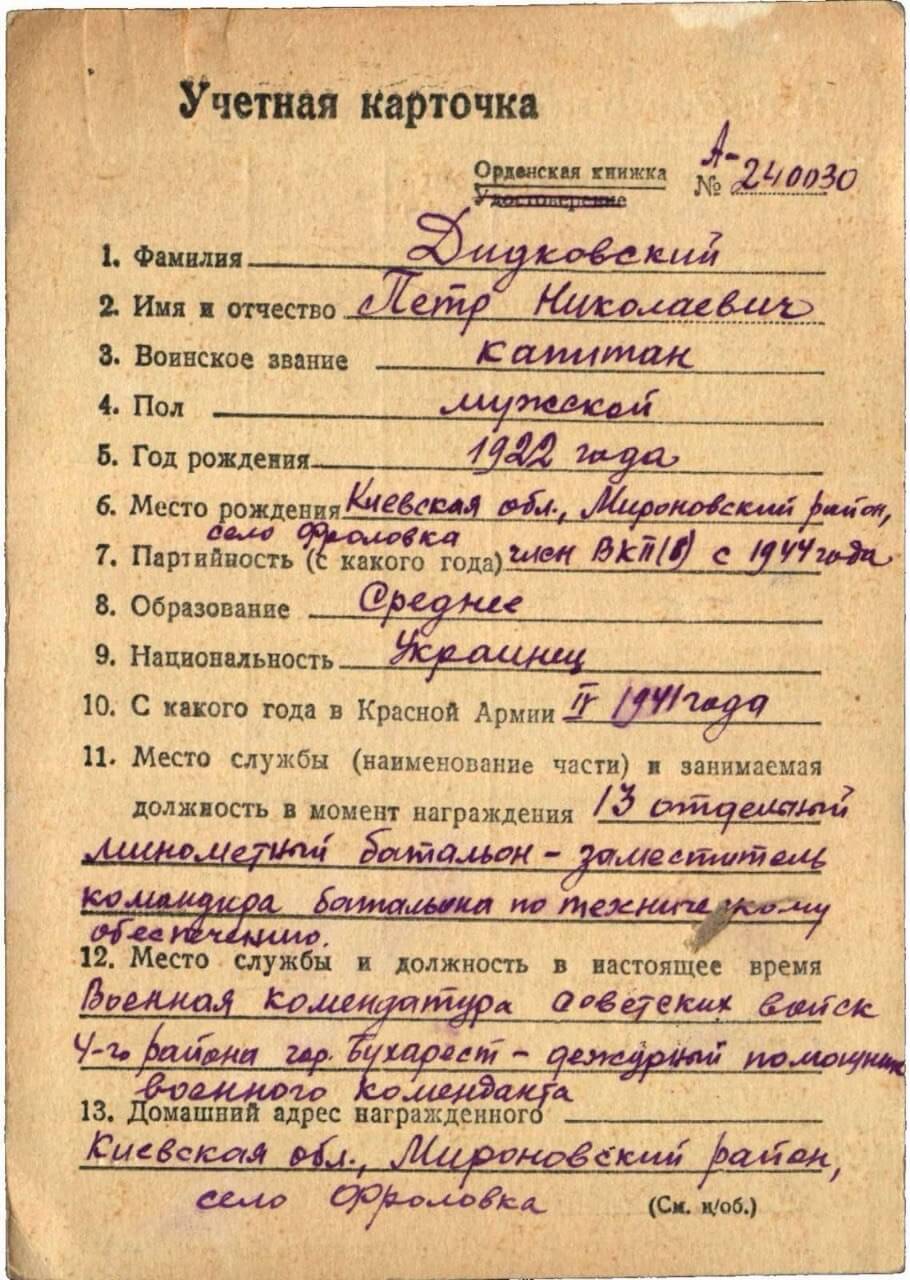 Учетная карточка
Орденская книжка
Удостоверение
А-
№ 240030
1. Фамилия Дидковский
2. Имя и отчество Петр Николаевич
3. Воинское звание капитан
4. Пол мужской
5. Год рождения 1922 года
6. Место рождения Киевская обл., Мироновский район,
село Фроловка
7. Партийность (с какого года) член ВКП(б) с 1944 года
8. Образование Среднее
9. Национальность Украинец
10. С какого года в Красной Армии IV 1941 года
11. Место службы (наименование части) и занимаемая
должность в момент награждения 13 отдельный
минометный батальон - заместитель
командира батальона по техническому
обеспечению.
12. Место службы и должность в настоящее время
Военная комендатура советских войск
4-го района гор. Бухарест - дежурный помощник
военного коменданта
13. Домашний адрес награжденного
Киевская обл., Мироновский район,
село Фроловка
(См. н/об.)